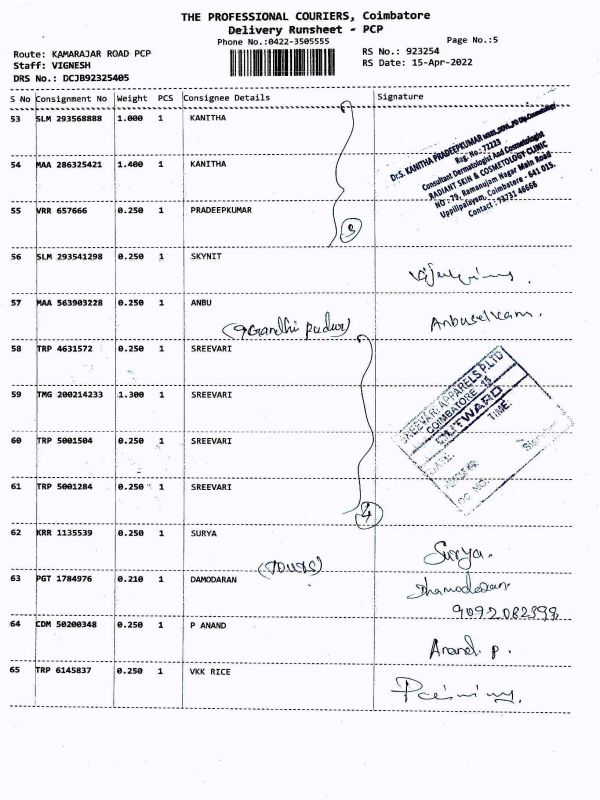 THE PROFESSIONAL COURIERS, Coimbatore
Delivery Runsheet - PCP
Phone No.:0422-3505555
Page No.:5
Route: KAMARAJAR ROAD PCP
RS No.: 923254
Staff: VIGNESH
RS Date: 15-Apr-2022
DRS No.: DCJB92325405
S No Consignment No Weight PCS Consignee Details Signature
53 SLM 293568888 1.000 1 KANITHA
54 MAA 286325421 1.400 1 KANITHA
Dr.S. KANITHA PRADEEPKUMAR
Reg. No : 72223
Consultant Dermatologist And Cosmetologist
RADIANT SKIN & COSMETOLOGY CLINIC
NO : 75, Ramanujam Nagar Main Road
Uppilipalayam, Coimbatore - 641 015.
Contact : 73731 46666
55 VRR 657666 0.250 1 PRADEEPKUMAR
3
56 SLM 293541298 0.250 1 SKYNIT
57 MAA 563903228 0.250 1 ANBU
Anbuselvam.
58 TRP 4631572 0.250 1 SREEVARI
59 TMG 200214233 1.300 1 SREEVARI
SREEVARI APPARELS P.LTD
COIMBATORE 15
INWARD
DATE: TIME:
60 TRP 5001504 0.250 1 SREEVARI
61 TRP 5001284 0.250 1 SREEVARI
4
62 KRR 1135539 0.250 1 SURYA
Surya.
63 PGT 1784976 0.210 1 DAMODARAN
Dhamodaran
9092082398
64 CDM 50200348 0.250 1 P ANAND
Anand. P.
65 TRP 6145837 0.250 1 VKK RICE